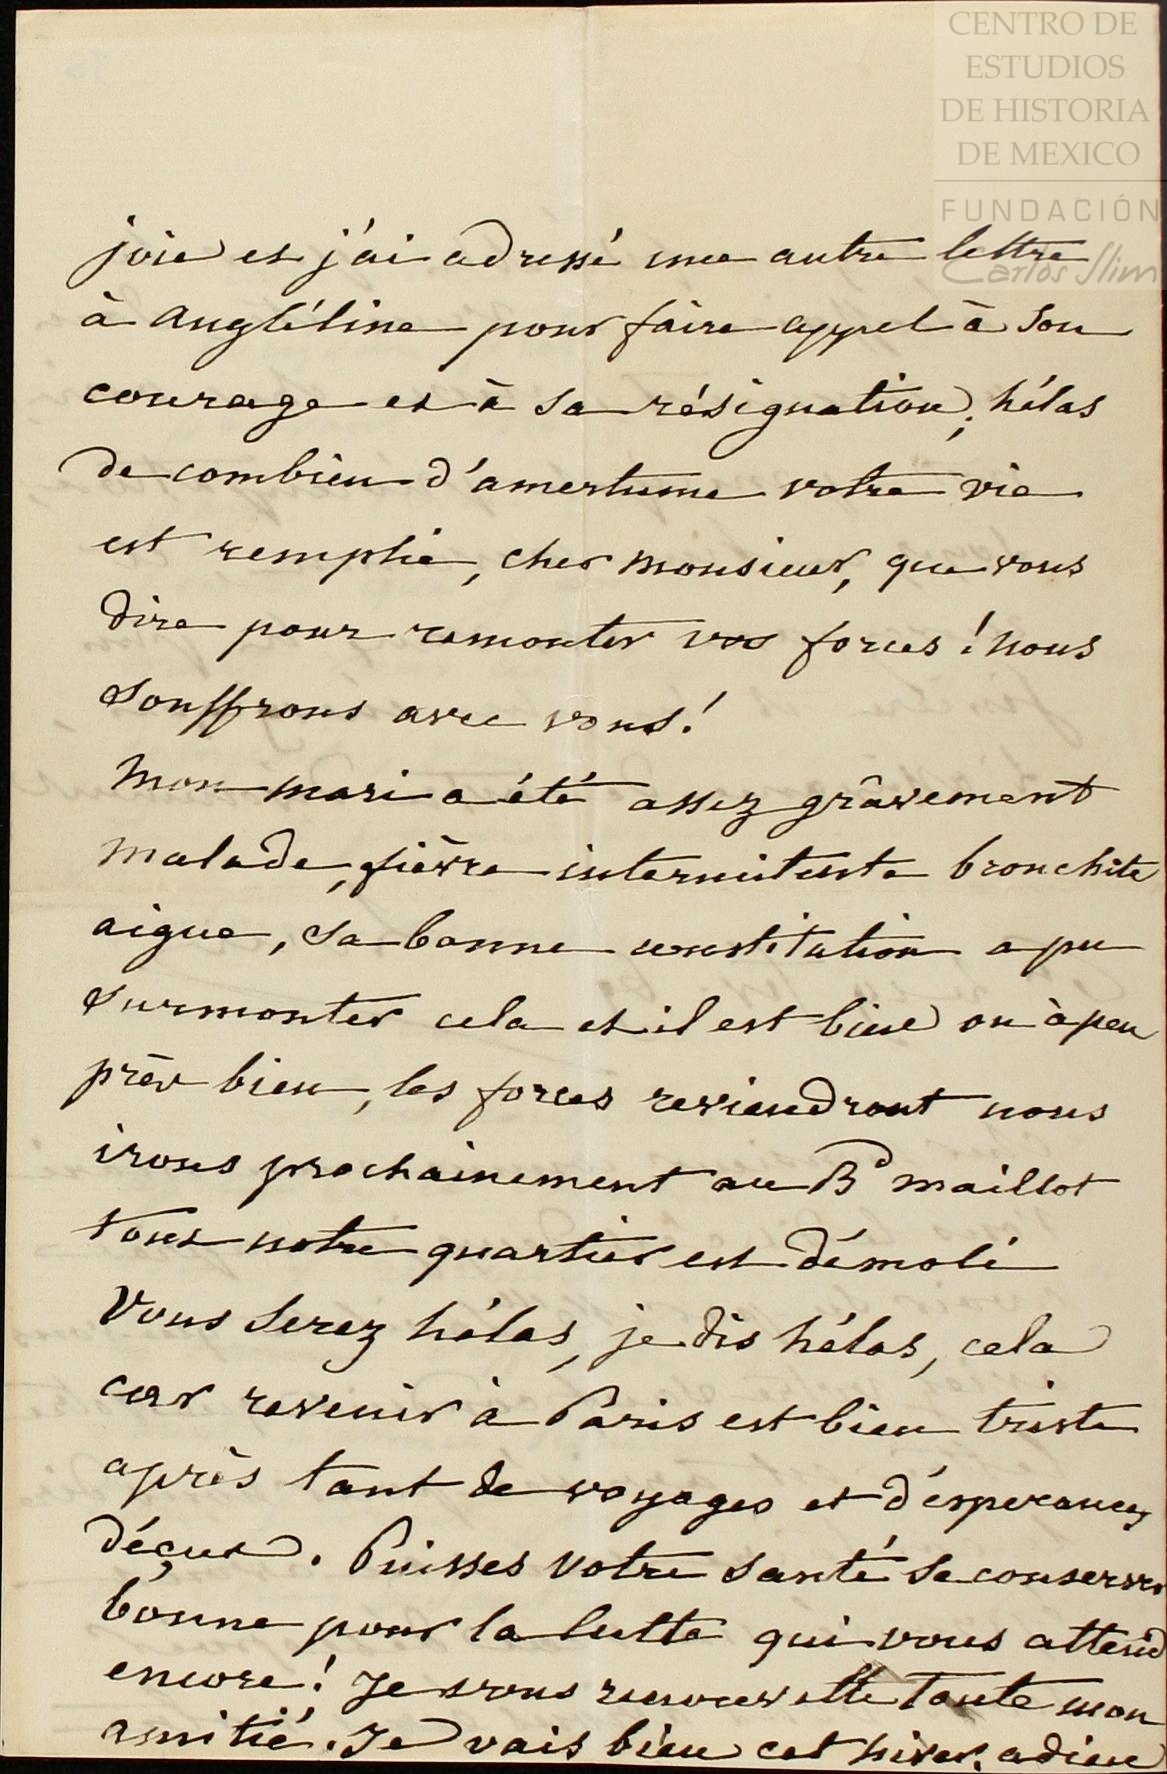 CENTRO DE
ESTUDIOS
DE HISTORIA
DE MEXICO
FUNDACIÓN
Carlos Slim
joie et j'ai adressé une autre lettre
à Angléline pour faire appel à son
courage et à sa résignation, hélas
de combien d'amertume votre vie
est remplie, cher monsieur, que vous
dire pour remonter vos forces ! nous
souffrons avec vous !
Mon mari a été assez grâvement
malade, fièvre intermitente bronchite
aigue, sa bonne constitution a pu
surmonter cela et il est bien ou à peu
près bien, les forces reviendront nous
irons prochainement au Bd maillot
tout notre quartier est démoli
Vous serez hélas, je dis hélas, cela
car revenir à Paris est bien triste
après tant de voyages et d'ésperances
déçues. Puisses votre santé se conserver
bonne pour la lutte qui vous attend
encore ! Je vous renouvelle toute mon
amitié. Je vais bien cet hiver. adieu